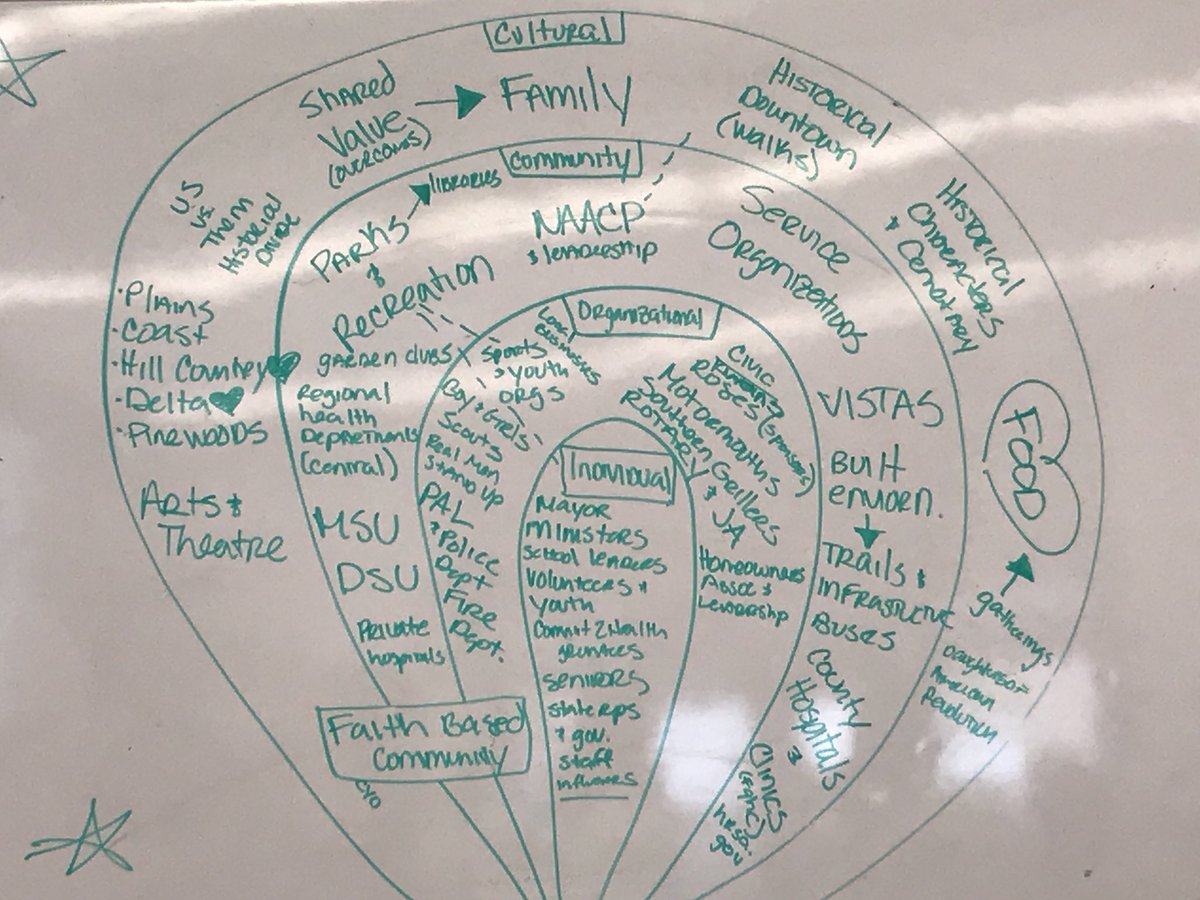 Cultural
Shared
Value
(overcoms)
Family
Historical
Downtown
(walks)
Historical
Characters
& Cemetary
US
vs.
Them
Historical
Divide
·Plains
·Coast
·Hill Country
·Delta
·Pinewoods
Arts &
Theatre
FOOD
gatherings
Daughters of
American
Revolution
Community
Parks
libraries
&
Recreation
NAACP
& leadership
Service
Organizations
garden clubs
Regional
health
(central)
MSU
DSU
Private
hospitals
VISTAS
Built
environ.
Trails &
Buses
County
Hospitals
&
Clinics
(FQHC)
gov
Organizational
Local
Businesses
Sports
& youth
orgs
Boy & Girls
Scouts
Real Men
Stand Up
PAL
& Police
Dept
Fire
Dept.
Civic
Roses (sponsors)
Motormouths
Southern Grillers
Rotary & JA
Homeowners
Assoc &
Leadership
Individual
Mayor
Ministers
School leaders
Volunteers &
youth
Commit 2 Health
grantees
seniors
state reps
& gov.
staff
Faith Based
Community
CYO